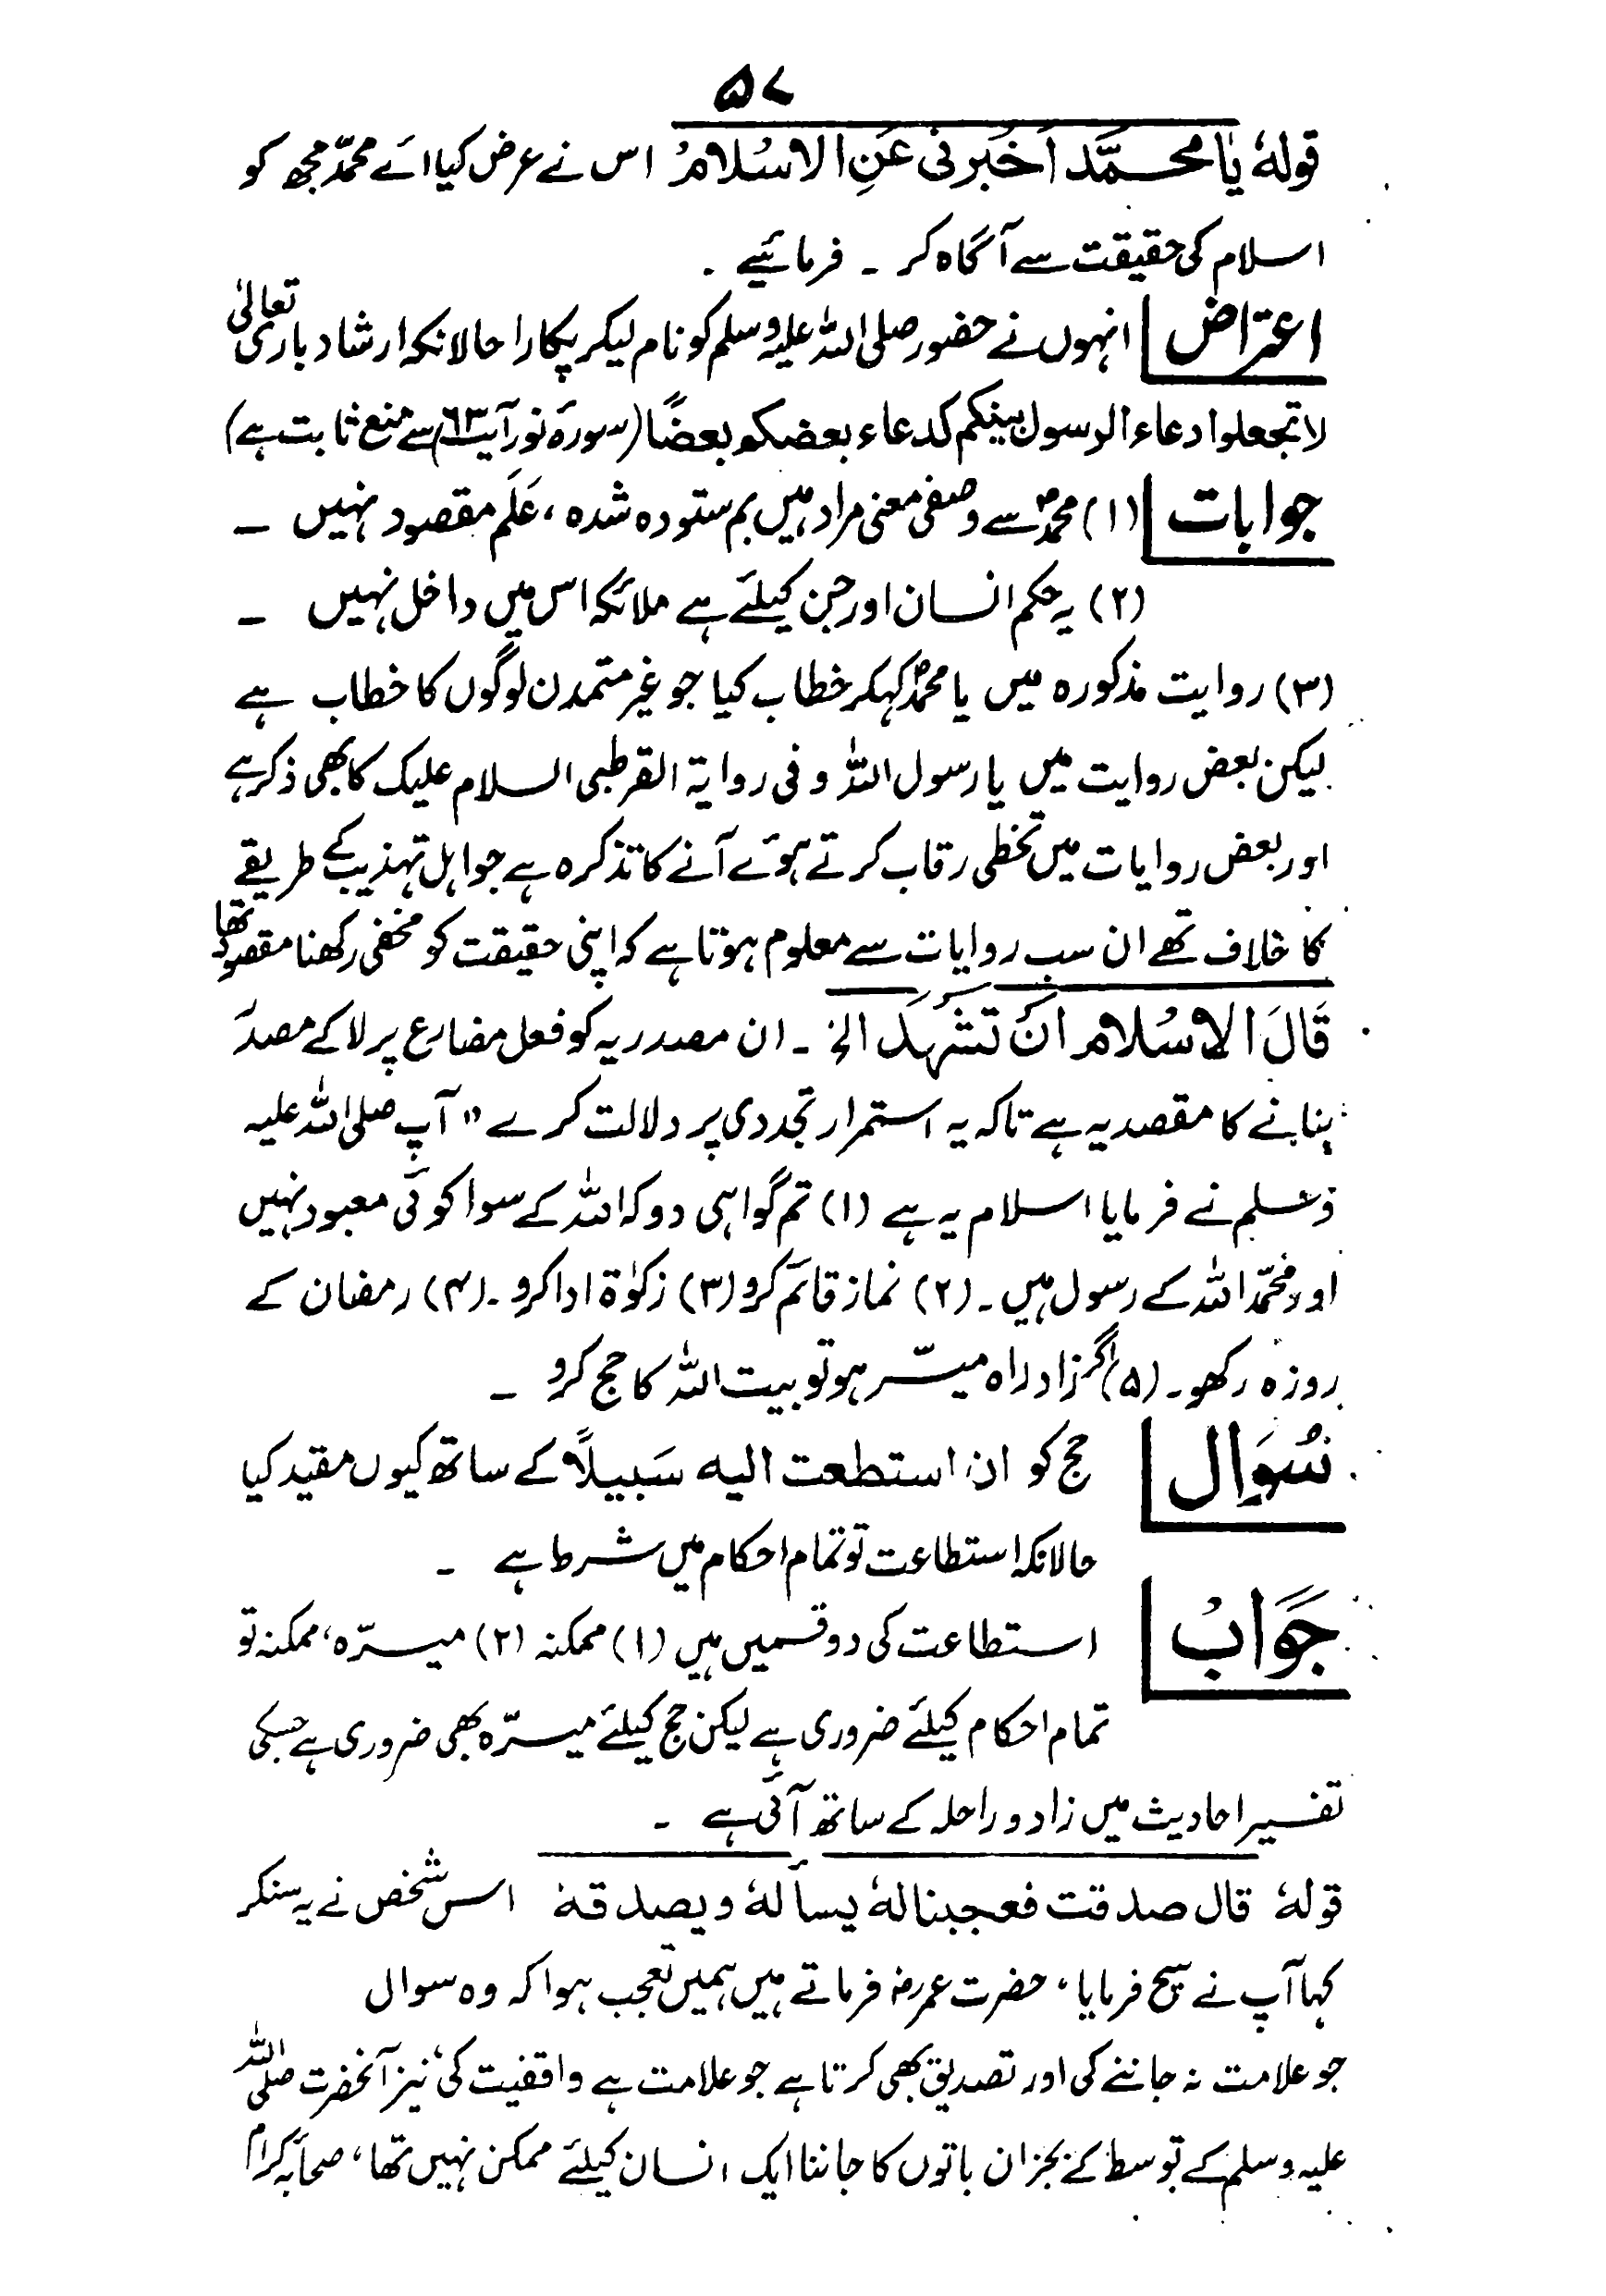 ۵۷
قولهٗ یا محمَّد اَخْبرنی عَنِ الاسْلامُ اس نے عرض کیا ائے محمّد مجھ کو
اسلام کی حقیقت سے آگاہ کر ۔ فرمائیے ۔
اعتراض انہوں نے حضور صلی اللہ علیہ وسلم کو نام لیکر پکارا حالانکہ ارشاد باری تعالیٰ
لا تجعلوا دعاء الرسول بینکم کدعاء بعضکم بعضًا (سورۂ نور آیت ۶۳) سے منع ثابت ہے)
جوابات (۱) محمدؐ سے وصفی معنی مراد ہیں بم ستودہ شدہ ، عَلَم مقصود نہیں ۔
(۲) یہ حکم انسان اور جن کیلئے ہے ملائکہ اس میں داخل نہیں ۔
(۳) روایت مذکورہ میں یا محمدؐ کہکر خطاب کیا جو غیر متمدن لوگوں کا خطاب ہے
لیکن بعض روایت میں یا رسول اللہ وفی روایة القرطبی السلام علیک کا بھی ذکر ہے
اور بعض روایات میں تخطی رقاب کرتے ہوئے آنے کا تذکرہ ہے جو اہل تہذیب کے طریقے
کا خلاف تھے ان سب روایات سے معلوم ہوتا ہے کہ اپنی حقیقت کو مخفی رکھنا مقصود تھا
قَالَ الاِسْلام اَنْ تَشْهَدَ الخ ۔ ان مصدریہ کو فعل مضارع پر لا کے مصدر
بنانے کا مقصد یہ ہے تاکہ یہ استمرار تجددی پر دلالت کرے " آپ صلی اللہ علیہ
وسلم نے فرمایا اسلام یہ ہے (۱) تم گواہی دو کہ اللہ کے سوا کوئی معبود نہیں
اور محمّد اللہ کے رسول ہیں ۔ (۲) نماز قائم کرو (۳) زکوٰة ادا کرو ۔ (۴) رمضان کے
روزہ رکھو ۔ (۵) اگر زاد راہ میسّر ہو تو بیت اللہ کا حج کرو ۔
سُوَال حج کو ان استطعت الیه سَبیلاً کے ساتھ کیوں مقید کیا
حالانکہ استطاعت تو تمام احکام میں شرط ہے ۔
جَوَابْ استطاعت کی دو قسمیں ہیں (۱) ممکنہ (۲) میسرّہ ، ممکنہ تو
تمام احکام کیلئے ضروری ہے لیکن حج کیلئے میسرّہ بھی ضروری ہے جسکی
تفسیر احادیث میں زاد و راحلہ کے ساتھ آئی ہے ۔
قولهٗ قال صدقت فعجبنا لهٗ یسألهٗ ویصدقهٗ اس شخص نے یہ سنکر
کہا آپ نے سچ فرمایا ، حضرت عمرؓ فرماتے ہیں ہمیں تعجب ہوا کہ وہ سوال
جو علامت نہ جاننے کی اور تصدیق بھی کرتا ہے جو علامت ہے واقفیت کی ، نیز آنحضرت صلی اللہ
علیہ وسلم کے توسط کے بجز ان باتوں کا جاننا ایک انسان کیلئے ممکن نہیں تھا ، صحابہ کرام